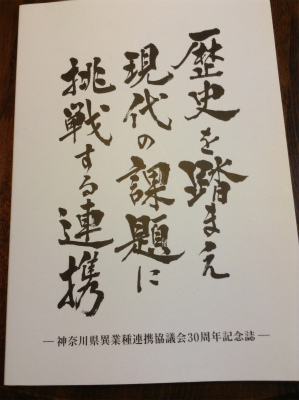 歴史を踏まえ
現代の課題に
挑戦する連携
―神奈川県異業種連携協議会30周年記念誌―